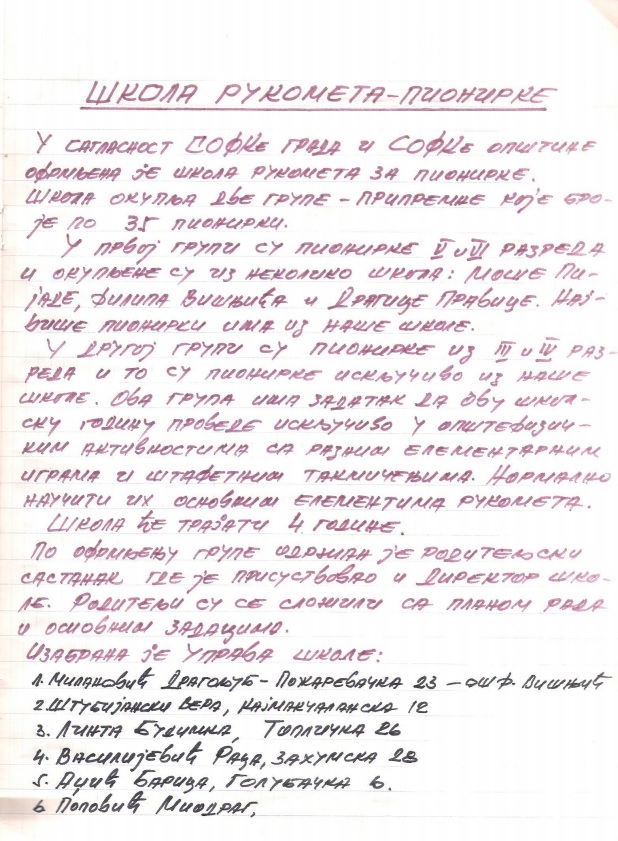 ШКОЛА РУКОМЕТА-ПИОНИРКЕ
У САГЛАСНОСТ СОФКе ГРАДА И СОФКе ОПШТИНЕ
ОФОРМЉЕНА ЈЕ ШКОЛА РУКОМЕТА ЗА ПИОНИРКЕ.
ШКОЛА ОКУПЉА ДВЕ ГРУПЕ - ПРИПРЕМНЕ КОЈЕ БРО-
ЈЕ ПО 35 ПИОНИРКИ.
У ПРВОЈ ГРУПИ СУ ПИОНИРКЕ V и VI РАЗРЕДА
И ОКУПЉЕНЕ СУ ИЗ НЕКОЛИКО ШКОЛА: МОШЕ ПИ-
ЈАДЕ, ФИЛИПА ВИШЊИЋА И ДРАГИЦЕ ПРАВИЦЕ. НАЈ-
ВИШЕ ПИОНИРКИ ИМА ИЗ НАШЕ ШКОЛЕ.
У ДРУГОЈ ГРУПИ СУ ПИОНИРКЕ ИЗ III и IV РАЗ-
РЕДА И ТО СУ ПИОНИРКЕ ИСКЉУЧИВО ИЗ НАШЕ
ШКОЛЕ. ОВА ГРУПА ИМА ЗАДАТАК ДА ОВУ ШКОЛ-
СКУ ГОДИНУ ПРОВЕДЕ ИСКЉУЧИВО У ОПШТЕФИЗИЧ-
КИМ АКТИВНОСТИМА СА РАЗНИМ ЕЛЕМЕНТАРНИМ
ИГРАМА И ШТАФЕТНИМ ТАКМИЧЕЊИМА. НОРМАЛНО
НАУЧИТИ ИХ ОСНОВНИМ ЕЛЕМЕНТИМА РУКОМЕТА.
ШКОЛА ЋЕ ТРАЈАТИ 4 ГОДИНЕ.
ПО ОФОРМЉЕЊУ ГРУПЕ ОДРЖАН ЈЕ РОДИТЕЉСКИ
САСТАНАК ГДЕ ЈЕ ПРИСУСТВОВАО И ДИРЕКТОР ШКО-
ЛЕ. РОДИТЕЉИ СУ СЕ СЛОЖИЛИ СА ПЛАНОМ РАДА
И ОСНОВНИМ ЗАДАЦИМА.
ИЗАБРАНА ЈЕ УПРАВА ШКОЛЕ:
1. МИЛАНОВИЋ ДРАГОЉУБ - ПОЖАРЕВАЧКА 23 - ОШ Ф. ВИШЊИЋ
2. ШТУБИЈАНСКИ ВЕРА, КАЈМАКЧАЛАНСКА 12
3. ЛИНТА БУДИМКА, ТОПЛИЧКА 26
4. ВАСИЛИЈЕВИЋ РАДА, ЗАХУМСКА 28
5. АЏИЋ БАРИЦА, ГОЛУБАЧКА 6.
6 ПОПОВИЋ МИОДРАГ,